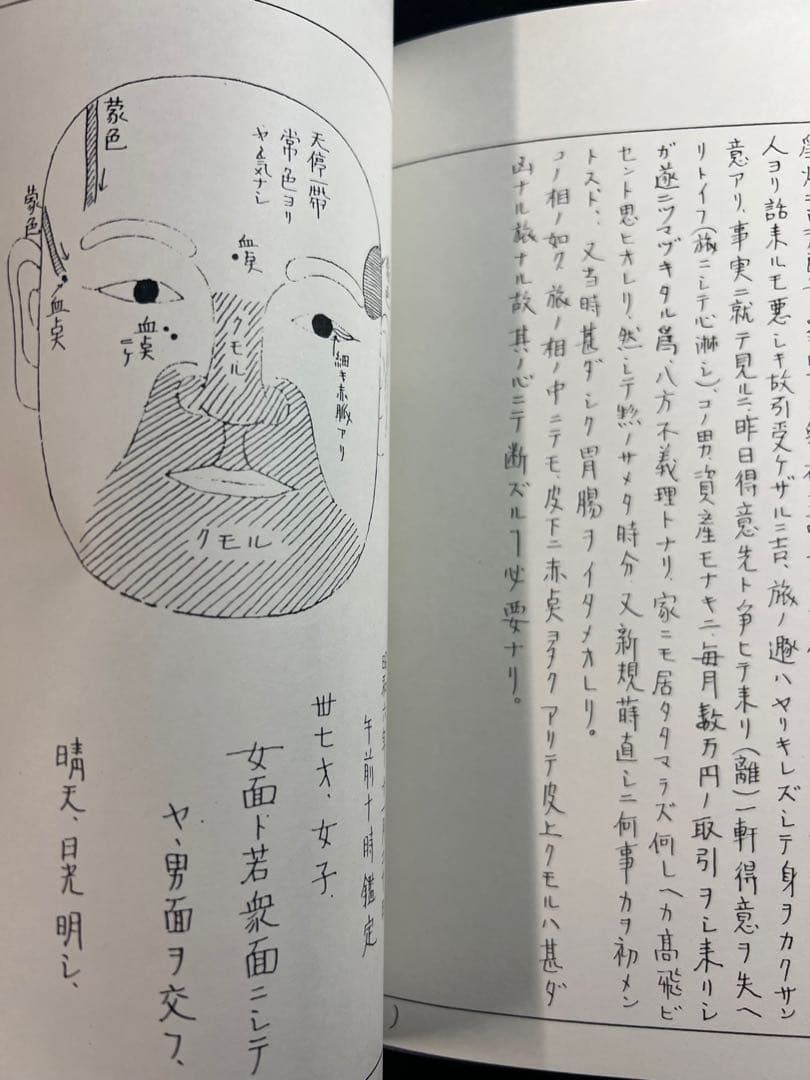 人ヨリ話来ルモ悪シキ故引受ケザルニ吉、旅ノ趣ハヤリキレズシテ身ヲカクサン
意アリ、事実ニ就テ見ルニ、昨日得意先ト争ヒテ来リ(離)一軒得意ヲ失ヘ
リトイフ(旅ニシテ心淋シ)、コノ男、資産モナキニ、毎月数万円ノ取引ヲシ来リシ
ガ遂ニツマヅキタル為、八方不義理トナリ、家ニモ居タタマラズ何レヘカ高飛ビ
セント思ヒオレリ、然シテ熱ノサメタ時分、又新規蒔直シニ何事カヲ初メン
トス、又当時甚ダシク胃腸ヲイタメオレリ。
コノ相ノ如ク、旅ノ相ノ中ニテモ、皮下ニ赤点ヲ多クアリテ皮上クモルハ甚ダ
凶ナル旅ナル故、其ノ心ニテ断ズルヿ必要ナリ。
蒙色
天停一帯
常色ヨリ
ヤヽ気ナシ
蒙色
血点
血点
血点
ニケ
クモル
細キ赤脈アリ
クモル
午前十時鑑定
卅七才、女子、
女面ト若衆面ニシテ
ヤヽ男面ヲ交フ、
晴天、日光明シ、